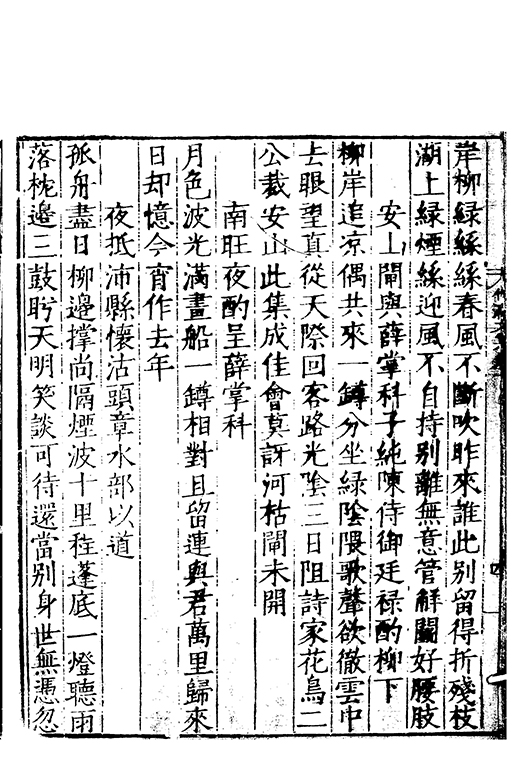 岸柳綠絲絲春風不斷吹昨來誰此別留得折殘枝
湖上綠煙絲迎風不自持別離無意管觧鬬好腰肢
安山閘與薛掌科子純陳侍御廷祿酌柳下
柳岸追凉偶共來一罇分坐綠陰隈歌聲欲徹雲中
去眼望真從天際回客路光陰三日阻詩家花鳥二
公裁安山此集成佳會莫訝河枯閘未開
南旺夜酌呈薛掌科
月色波光滿畫船一罇相對且留連與君萬里歸來
日却憶今宵作去年
夜抵沛縣懷沽頭章水部以道
孤舟盡日柳邊撑尚隔煙波十里程蓬底一燈聽雨
落枕邊三鼓盻天明笑談可待還當別身世無憑忽